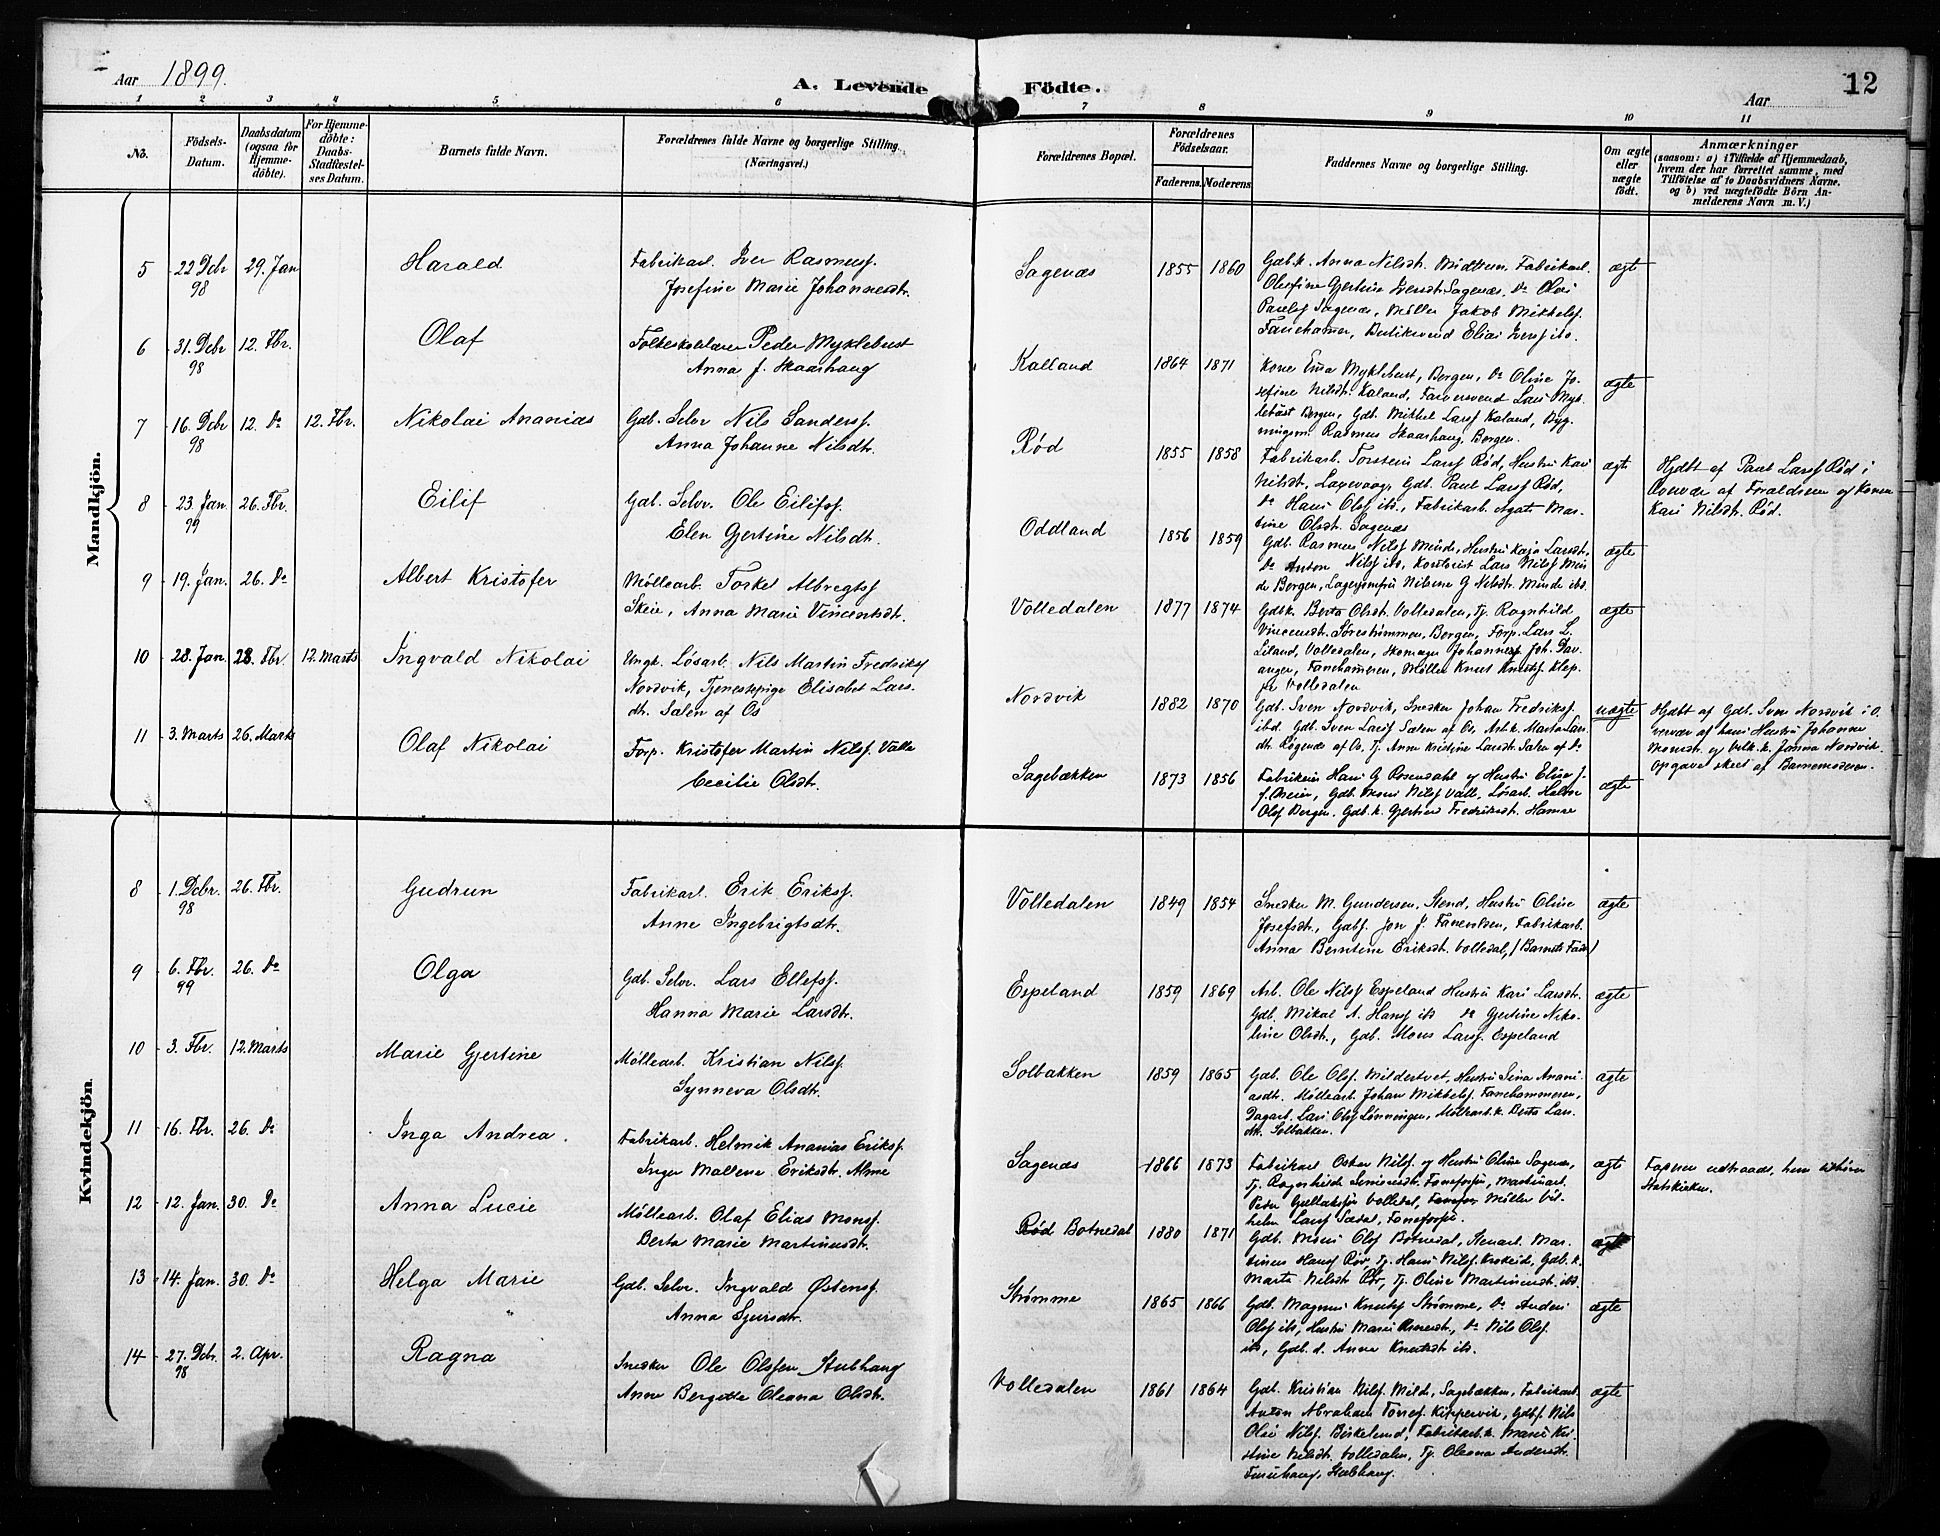 Aar 1899.
A. Levende Födte.
Aar
12
1 2 3 4 5 6 7 8 9 10 11
No.
Födsels-Datum.
Daabsdatum (ogsaa for Hjemme-döbte).
For Hjemme-döbte: Daabs-Stadfæstel-ses Datum.
Barnets fulde Navn.
Forældrenes fulde Navne og borgerlige Stilling. (Næringsvei.)
Forældrenes Bopæl.
Forældrenes Födselsaar.
Faderens. Moderens.
Faddernes Navne og borgerlige Stilling.
Om ægte eller uægte födt.
Anmærkninger
(saasom: a) i Tilfælde af Hjemmedaab, hvem der har forrettet samme, med Tilföielse af to Daabsvidners Navne, og b) ved uægtefödte Börn An-melderens Navn m. V.)
Mandkjön.
5 22 Debr 98 29. Jan Harald
Fabrikarb. Iver Rasmusf.
Josefine Marie Johannesdtr.
Sagenæs 1855 1860
Gdbk. Anna Nilsdt. Midttun. Fabrikarb.
Olefine Gjertine Iversdt. Sagenæs. Do Olai
Paulsf Sagenæs, Møller Jakob Mikkelsf.
Fanehamer, Butiksvend Elias Iversf ibd.
ægte
6 31. Debr 98 12. Fbr. Olaf
Folkeskolelærer Peder Myklebust
Anna J. Skaarhaug
Kalland 1864 1871
Kone Myklebust, Bergen, Do Oline Jo-
sefine Nilsdt. Kaland, Farversvend Lars Myk-
lebust Bergen, Gdb. Mikkel Larsf Kaland, Byg-
ningsm. Rasmus Skaarhaug, Bergen.
ægte
7 16. Debr 98 12. Do 12. Fbr. Nikolai Ananias
Gdb. Selv Nils Sandersf.
Anna Johanne Nilsdtr.
Rød 1855 1858
Fabrikarb. Torstein Larsf Rød, Hustru Kari
Nilsdt. Gdb. Paul Larsf Rød,
Do Hans Olsf ibd., Fabrikarb. Agat. Mar-
tine Olsdt. Sagenæs
ægte
Hjdbt af Paul Larsf Rød i
Overvær af Forældrene og Konen
Kari Nilsdt. Rød.
8 23. Jan. 99 26. Fbr. Eilif
Gdb. Selvr. Ole Eilifsf.
Elen Gjertine Nilsdt.
Oddland 1856 1859
Gdb. Rasmus Nilsf Minde, Hustru Kaja Larsdt.
Do Anton Nilsf ibd, Kontorist Lars Nilsf Min-
de Bergen, Nilsine G Nilsdt. Minde ibd.
ægte
9 19. Jan. 26. Do Albert Kristofer
Møllearb. Torkel Albregtsf
Skeie, Anna Marie Vincentsdt.
Volledalen 1877 1874
Gdbk. Berta Olsdt. Volledalen, Tj. Ragnhild
Vincentsdt. Sørestrømmen, Bergen, Forp. Lars L.
Liland, Volledalen, Skomager Johannes Joh. Dav-
anger, Fanehameren, Møller Knut Knutsf. Klep-
pe Volledalen
ægte
10 28. Jan. 28. Fbr. 12. Marts Ingvald Nikolai
Ungk. Løsarb. Nils Martin Fredriksf
Nordvik, Tjenestepige Elisabet Lars-
dt. Sælen af Os
Nordvik 1882 1870
Gdb. Sven Nordvik, Snedker Johan Fredriksf.
ibd. Gdb. Sven Larsf Sælen af Os, Arb.k. Marta Lars-
dt. Røgenæs af Os, Tj. Anne Kristine Larsdt. Sælen af Do
uægte
Hjdbt af Gdb. Sven Nordvik i O-
vervær af hans Hustru Johanne
Monsdt. og Janna Nordvik.
Opgave skeet af Barnemoderen.
11 3. Marts 26. Marts Olaf Nikolai
Forp. Kristofer Martin Nilsf Valle
Cecilie Olsdt.
Sagebækken 1873 1856
Hans G Rosendahl og Hustru Elise J.
Gdb. Mons Nilsf Valle, Løsarb. Halvor
Olsf Bergen. Gdb.k. Gjertrud Fredriksdt. Hamre
ægte
Kvindekjön.
8 1. Debr. 98 26. Fbr. Gudrun
Fabrikarb. Erik Eriksf.
Anne Ingebrigtsdtr.
Volledalen 1849 1854
Snedker M. Gundersen, Stend, Hustru Oline
Josefsdt., Gdbf. Jon J. Fabrikarb.
Anna Berntine Eriksdt. Volledal, (Barnets Fader)
ægte
9 6. Fbr. 99 26. Do Olga
Gdb. Selvr. Lars Ellefsf.
Hanna Marie Larsdtr.
Espeland 1859 1869
Arb. Ole Nilsf Espeland Hustru Kari Larsdt.
Gdb. Mikal A. Hansf ibd Do Gjertine Niko-
line Olsdt., Gdb. Mons Larsf. Espeland
ægte
10 3. Fbr. 12. Marts Marie Gjertine
Møllearb. Kristian Nilsf
Synneva Olsdt.
Solbakken 1859 1865
Gdb. Ole Olsf. Mildestvet, Hustru Sina Anani-
asdt. Møllearb. Johan Mikkelsf. Fanehammeren,
Dagarb. Lars Olsf Lønningen, Møllearb.k. Berta Lars-
dt. Solbakken.
ægte
11 16. Fbr. 26. Do Inga Andrea.
Fabrikarb. Helmik Ananias Eriksf.
Inger Mallene Eriksdt. Alme
Sagenæs 1866 1873
Fabrikarb. Oskar Nilsf. og Hustru Oline Sagenæs,
Tj. Ragnhilde Simonsdt.
Peder Gullaksf Volledal, Møller Vil-
helm Larsf Sædal,
ægte
Faderen udtraadt, hun tilhører
Statskirken.
12 12. Jan. 30. Do Anna Lucie
Møllearb. Olaf Elias Monsf.
Berta Marie Martinusdt.
Rød Botnedal 1880 1871
Gdb. Mons Olsf Botnedal, Stenarb. Mar-
tinus Hansf Rør, Tj. Hans Nilsf. Krokeide, Gdb.k.
Marta Nilsdt Rør, Tj. Oline Martinusdt. ibd.
ægte
13 14. Jan. 30. Do Helga Marie
Gdb. Selvr. Ingvald Østensf.
Anna Sjursdt.
Strømme 1865 1866
Gdb. Magnus Knutsf Strømme, Do Anders
Olsf ibd, Hustru Marie Do Nils Olsf.
ibd, Gdb. d. Anna Knutsdt ibd.
ægte
14 27. Debr. 98 2. Apr. Ragna
Snedker Ole Olsen Stubhaug
Anne Bergitte Oleana Olsdt.
Volledalen 1861 1864
Gdb. Kristian Nilsf. Milde, Sagebækken, Fabrikarb.
Anton Abraham Tonnesf. Kippervik, Gdbf. Nils
Olai Nilsf. Birkelund, Fabrikarb.k. Marie Kri-
stine Nilsdt. Volledalen, Tj. Oleana Andersdt.
Stubhaug.
ægte